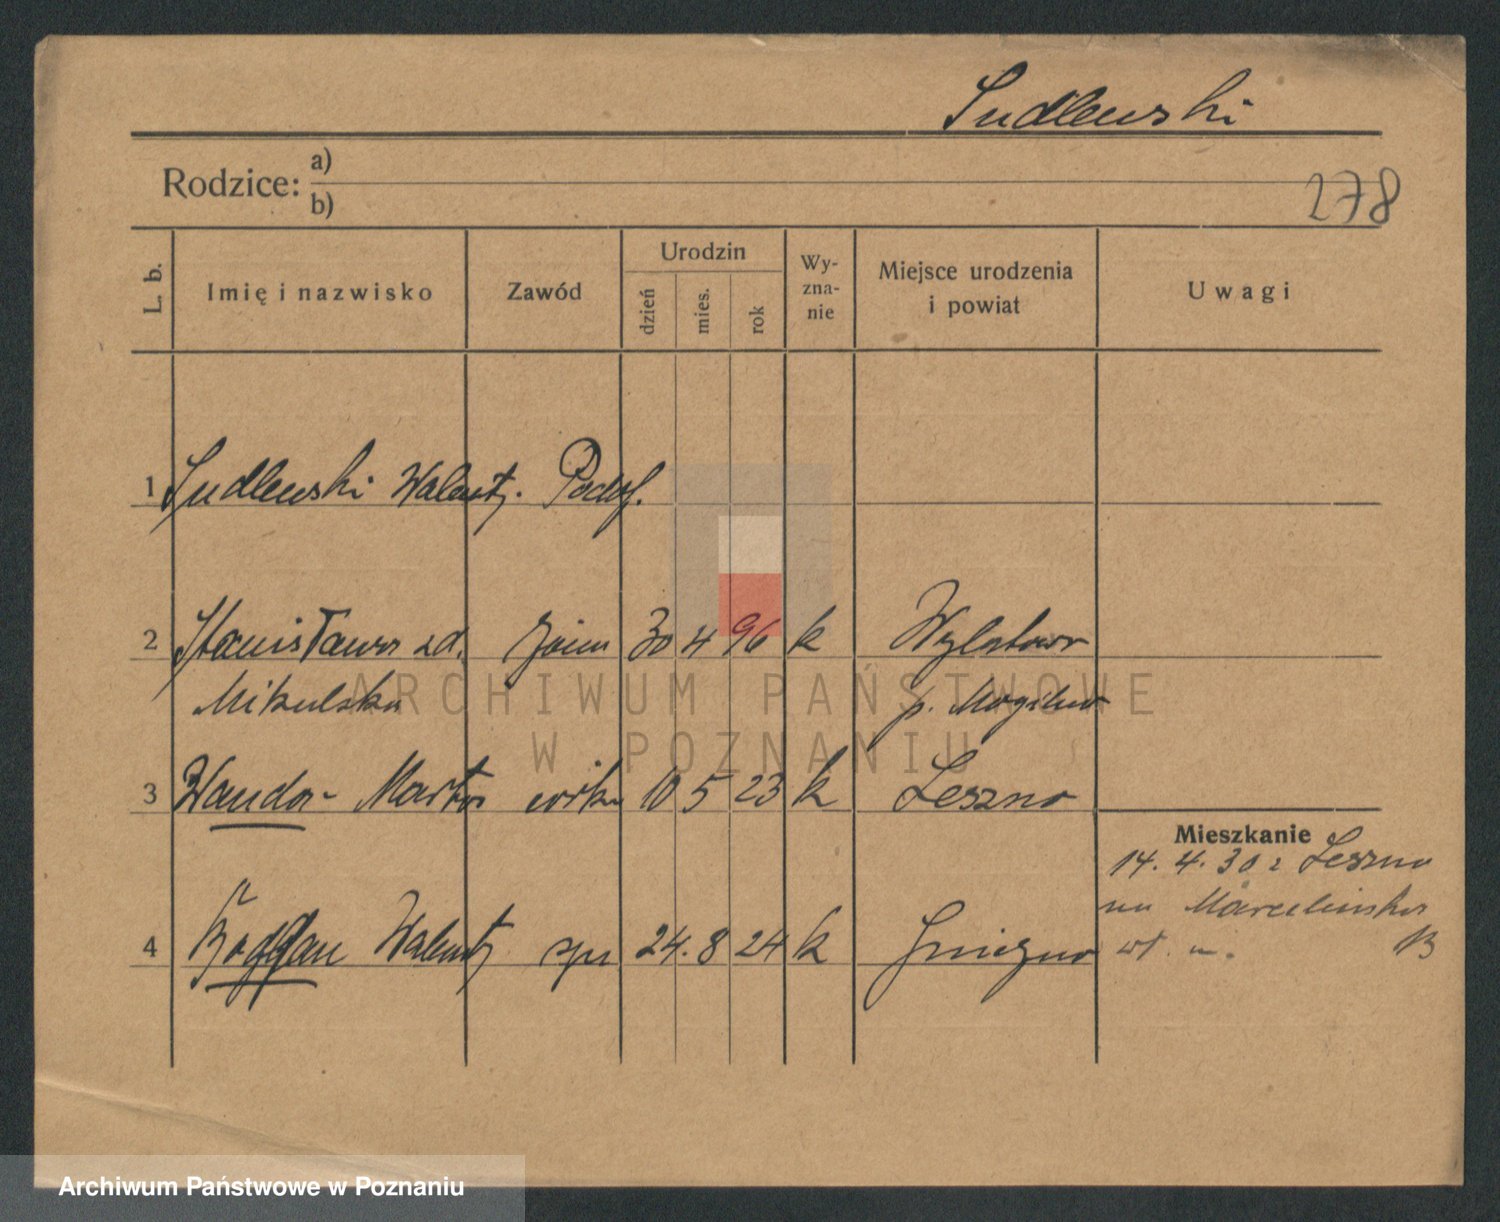 Sudlewski
Rodzice: a)
b)
278
L. b. Imię i nazwisko Zawód Urodzin dzień mies. rok Wy-zna-nie Miejsce urodzenia i powiat Uwagi
1 Sudlewski Walenty. Podof.
2 Stanisława zd. 30 4 96 k Wylatowo
Mikulska p. Mogilno
3 Wanda- Marta córka 10 5 23 k Leszno
Mieszkanie
14. 4. 30 z Leszna
na Marcelińska
4 Bogdan Walenty syn 24. 8 24 k Gniezno
ARCHIWUM PAŃSTWOWE
W POZNANIU
Archiwum Państwowe w Poznaniu